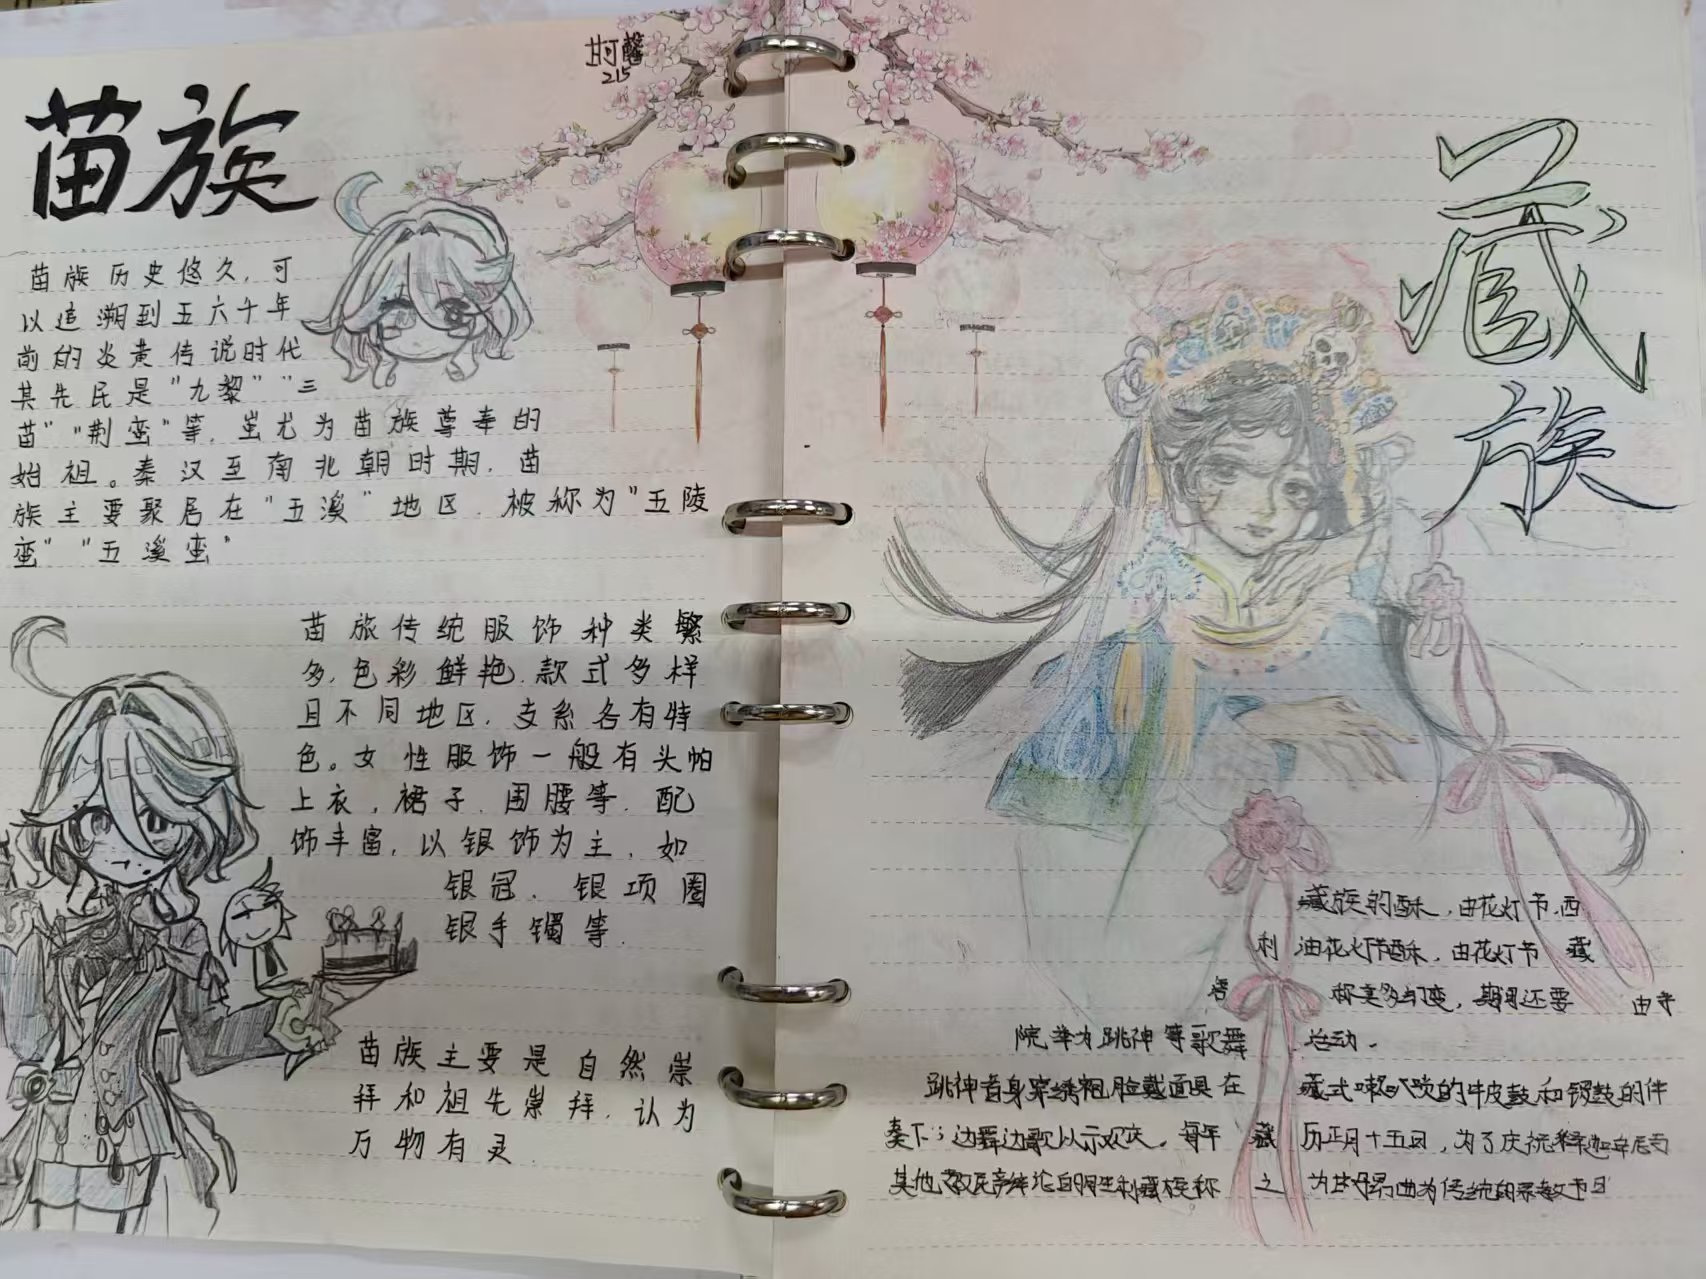 苗族
甘可馨
215
苗族历史悠久,可
以追溯到五六千年
前的炎黄传说时代
其先民是"九黎""三
苗""荆蛮"等,蚩尤为苗族尊奉的
始祖。秦汉至南北朝时期,苗
族主要聚居在"五溪"地区,被称为"五陵
蛮""五溪蛮"
苗族传统服饰种类繁
多,色彩鲜艳,款式多样
且不同地区,支系各有特
色。女性服饰一般有头帕
上衣,裙子,围腰等,配
饰丰富,以银饰为主,如
银冠,银项圈
银手镯等.
苗族主要是自然崇
拜和祖先崇拜,认为
万物有灵
藏族
藏族的酥,由花灯节,西
利 油花灯节酥,由花灯节 藏
还要 由寺
院举为跳神等歌舞 活动.
跳神者身穿绣袍脸戴面具在 藏式 的牛皮鼓和 鼓的伴
奏下;边舞边歌以示欢庆。每年 藏 历正月十五日,为了庆祝释迦牟尼与
其他 之 为 传统的宗教节日